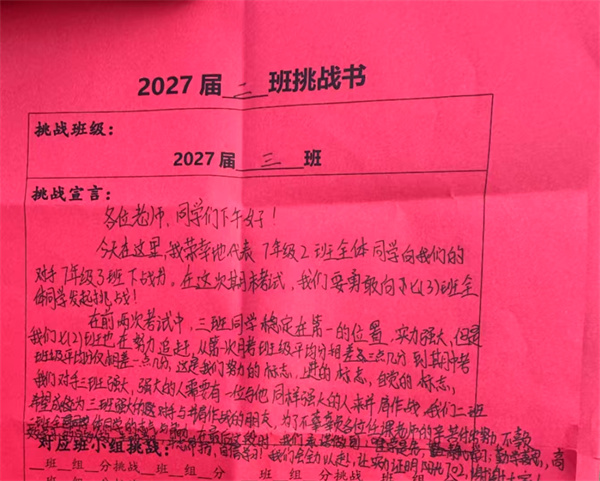 2027届 二 班挑战书
挑战班级：
2027届 三 班
挑战宣言：
各位老师，同学们下午好！
今天在这里，我荣幸地代表7年级2班全体同学向我们的
对手7年级3班下战书。在这次期末考试，我们要勇敢向七(3)班全
体同学发起挑战！
在前两次考试中，三班同学稳定在第一的位置，实力强大，但是
我们七(2)班也在努力追赶，从第一次月考班级平均分相差三点几分到期中考
班级平均分仅相差一点几分，这是我们努力的标志，上进的标志，的标志，
我们对手三班强大，强大的人需要有一位与他同样强大的人来并肩作战，我们二班
希望成为三班强大的对手与并肩作战的朋友，为了不辜负各位任课老师的辛苦付出
对应班小组挑战：
我们会全力以赴，让实力证明
班 组 分挑战 班 组 分